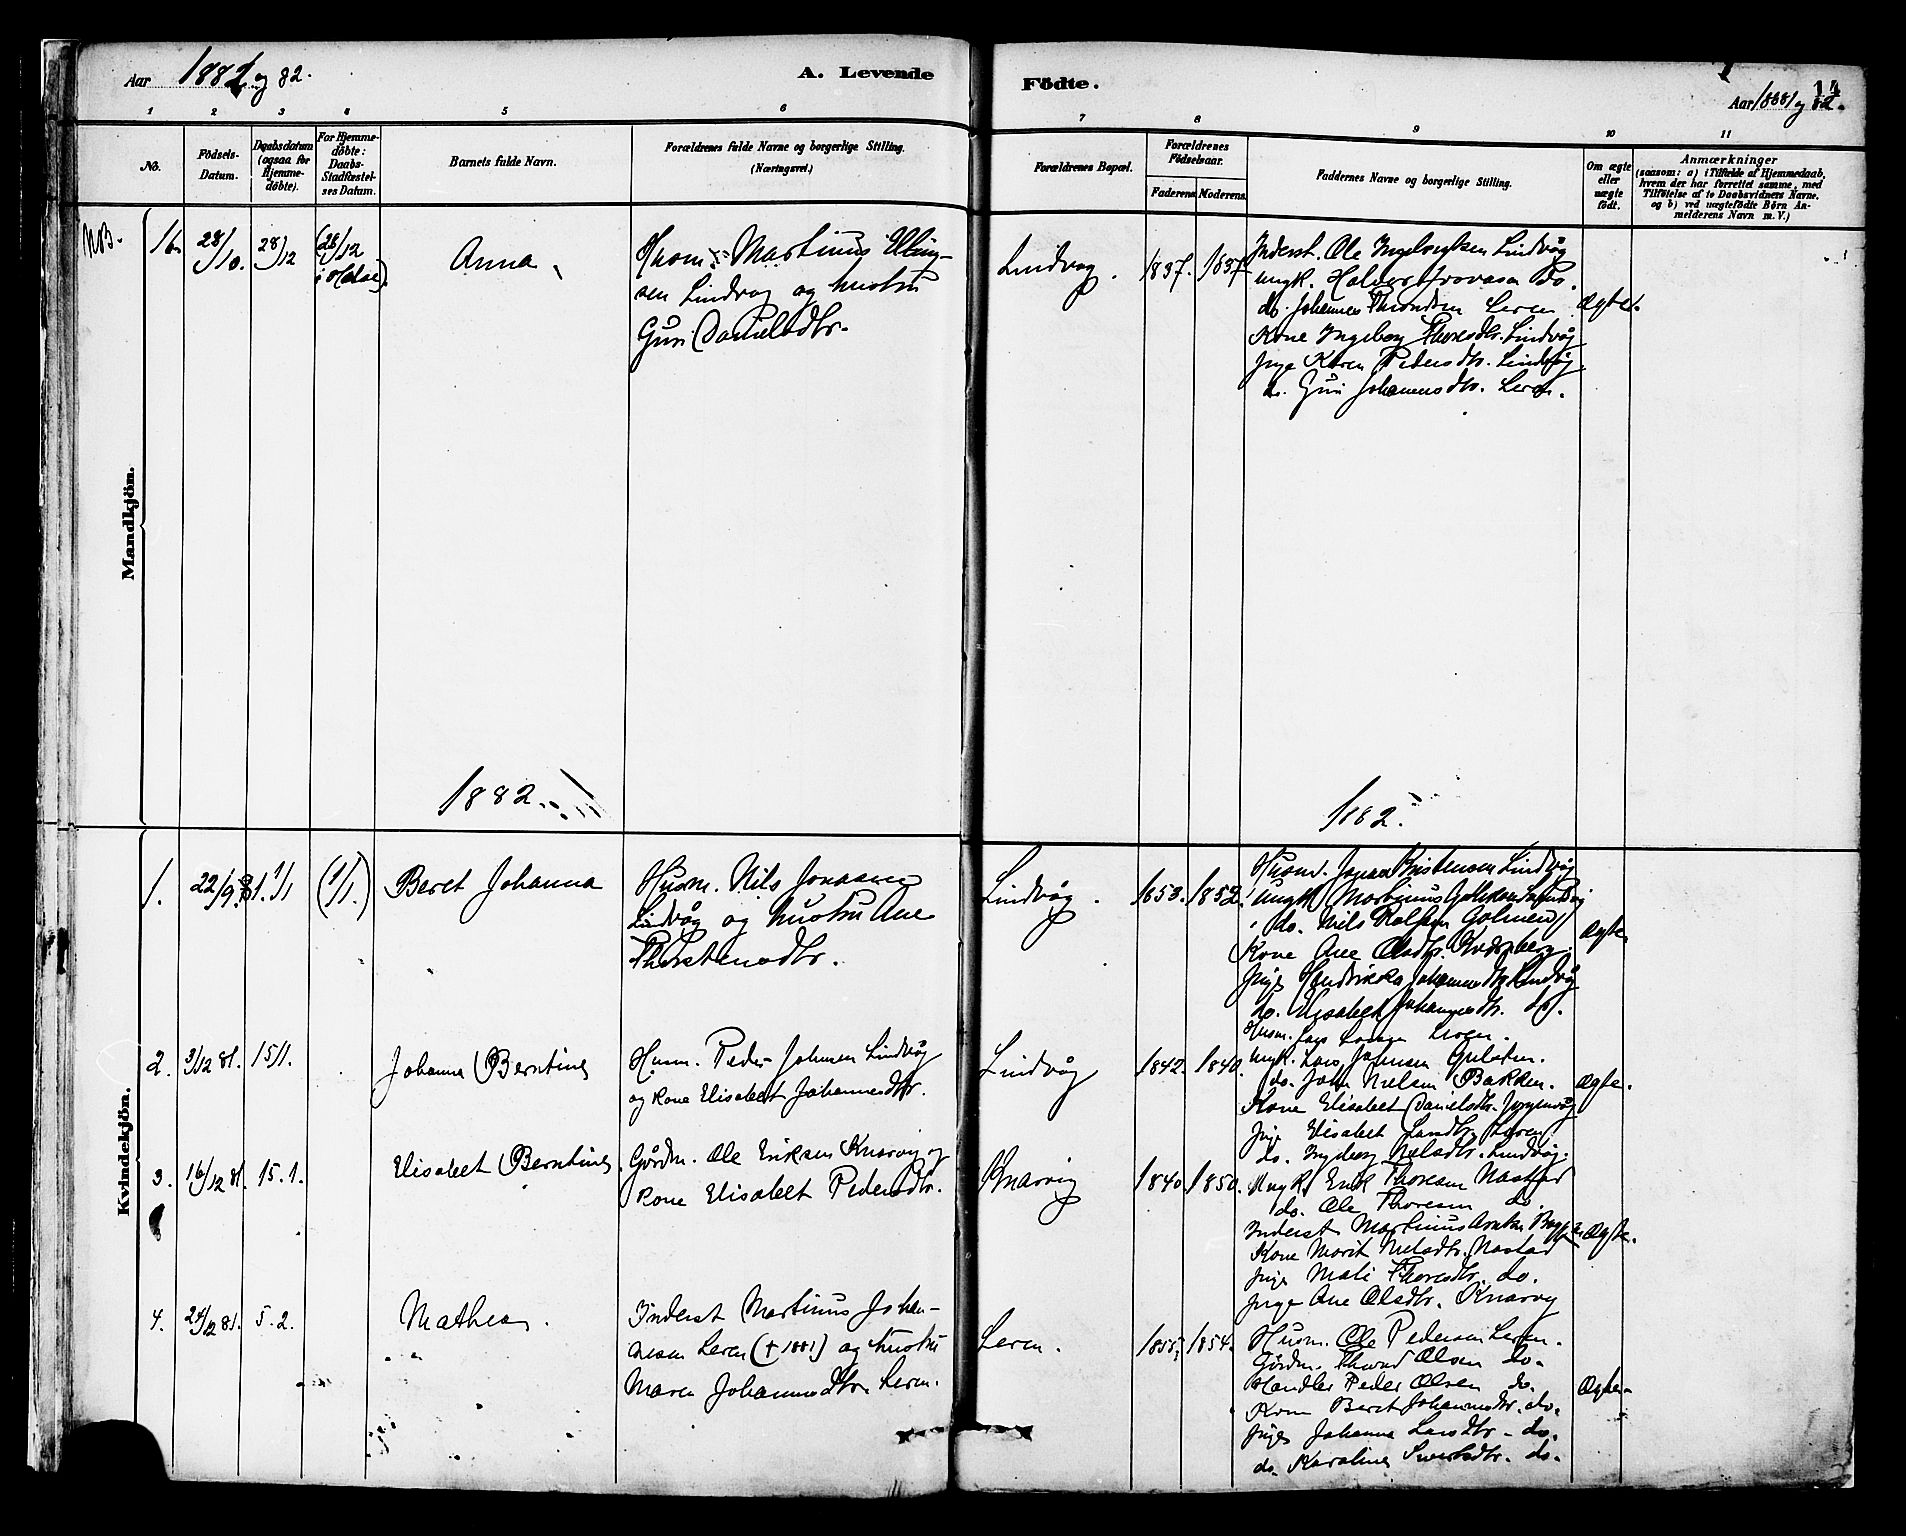 Aar 1881 og 82.
A. Levende
Födte.
Aar 1881 og 82.
14
1 2 3 4 5 6 7 8 9 10 11
No.
Födsels-
Datum.
Daabsdatum
(ogsaa for
Hjemme-
döbte).
For Hjemme-
döbte:
Daabs-
Stadfæstel-
ses Datum.
Barnets fulde Navn.
Forældrenes fulde Navne og borgerlige Stilling.
(Næringsvei.)
Forældrenes Bopæl.
Forældrenes
Födselsaar.
Faderens Moderens.
Faddernes Navne og borgerlige Stilling.
Om ægte
eller
uægte
födt.
Anmærkninger
(saasom: a) i Tilfælde af Hjemmedaab,
hvem der har forrettet samme, med
Tilföielse af to Daabsvidners Navne.
og b) ved uægtefödte Börn An-
melderens Navn m. V.)
Mandkjön.
NB.
16. 28/10. 28/12 (28/12
i Halse).
Anna
Husm. Martinus Elling-
sen Lindvog og hustru
Guri Danielsdtr.
Lindvog. 1837. 1837
Inderst. Ole Lindvåg
ungk. Halvor Do.
do. Johannes Leren
Kone Ingeborg Thoresdtr. Lindvåg
Pige Karen Pedersdtr. Lindvåg
do. Guri Johannesdtr. Leren.
Ægte.
1882.
1882.
Kvindekjön.
1. 22/9.81. 1/1 (1/1.)
Beret Johanna
Husm. Nils Jonasen
Lindvåg og hustru Ane
Thorstensdtr.
Lindvåg. 1853. 1852.
Husm. Jonas Kristensen Lindvåg
ungk. Martinus
do. Nils Golmen
Kone Ane Olsdtr. Kvernberg.
Pige Hendrikka Johannesdtr. Lindvåg
do. Elisabet Johannesdtr. do.
Ægte.
2. 3/12 81. 15/1.
Johanna Berntine
Husm. Peder Johnsen Lindvåg
og kone Elisabet Johannesdtr.
Lindvåg 1842. 1840.
Husm. Lars
ungk. Lars Johnsen
do. John Nielsen Bakken.
Kone Elisabet Danielsdtr.
Pige Elisabet Larsdtr. Leren
do. Ingeborg Nielsdtr. Lindvåg.
Ægte.
3. 16/12 81. 15.1.
Elisabet Berntine
Gårdm. Ole Eriksen Knarvig og
kone Elisabet Pedersdtr.
Knarvig 1840 1850.
Ungk. Erik Thoresen Nastad
do. Ole Thoresen do.
Inderst Martinus
Kone Marit Nielsdtr. Nastad
Pige Mali Thoresdtr. do.
Pige Ane Olsdtr. Knarvig
Ægte.
4. 24/12 81. 5.2.
Mathea.
Inderst Martinus Johan-
nesen Leren (†1881) og hustru
Maren Johannesdtr. Leren.
Leren. 1855. 1854.
Husm. Ole Pedersen Leren.
Gårdm. Thrond Olsen do.
Handler Peder Olsen do.
Kone Beret Johannesdtr. do.
Pige Johanna Larsdtr. do.
do. Karoline Sivertsdtr. do.
Ægte.